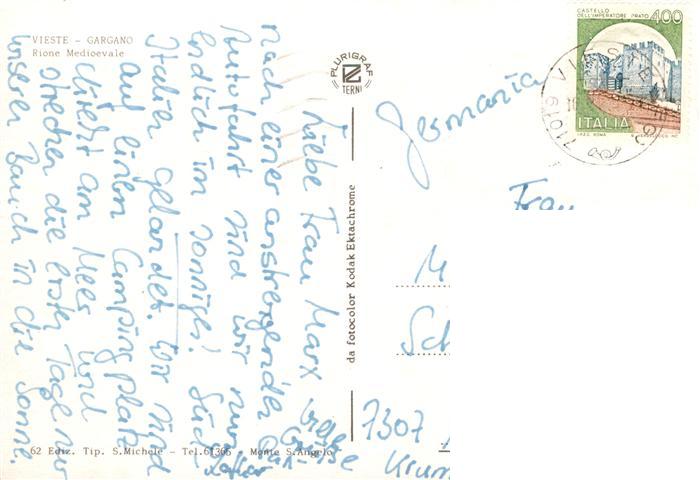 VIESTE - GARGANO
Rione Medioevale
PLURIGRAF
TERNI
CASTELLO
DELL'IMPERATORE PRATO 400
ITALIA
I.P.Z.S. ROMA
VIESTE
71019
Liebe Frau Marx
nach einer anstrengenden
Autofahrt sind wir nun
endlich im sonnigen Süd-
Italien gelandet. Wir sind
auf einem Campingplatz
direkt am Meer und
strecken die ersten Tage nur
unseren Bauch in die Sonne.
Viele
Grüße
da fotocolor Kodak Ektachrome
Germania
Frau
M
Sch
7307
Krum
62 Ediz. Tip. S.Michele - Tel.61305 - Monte S.Angelo